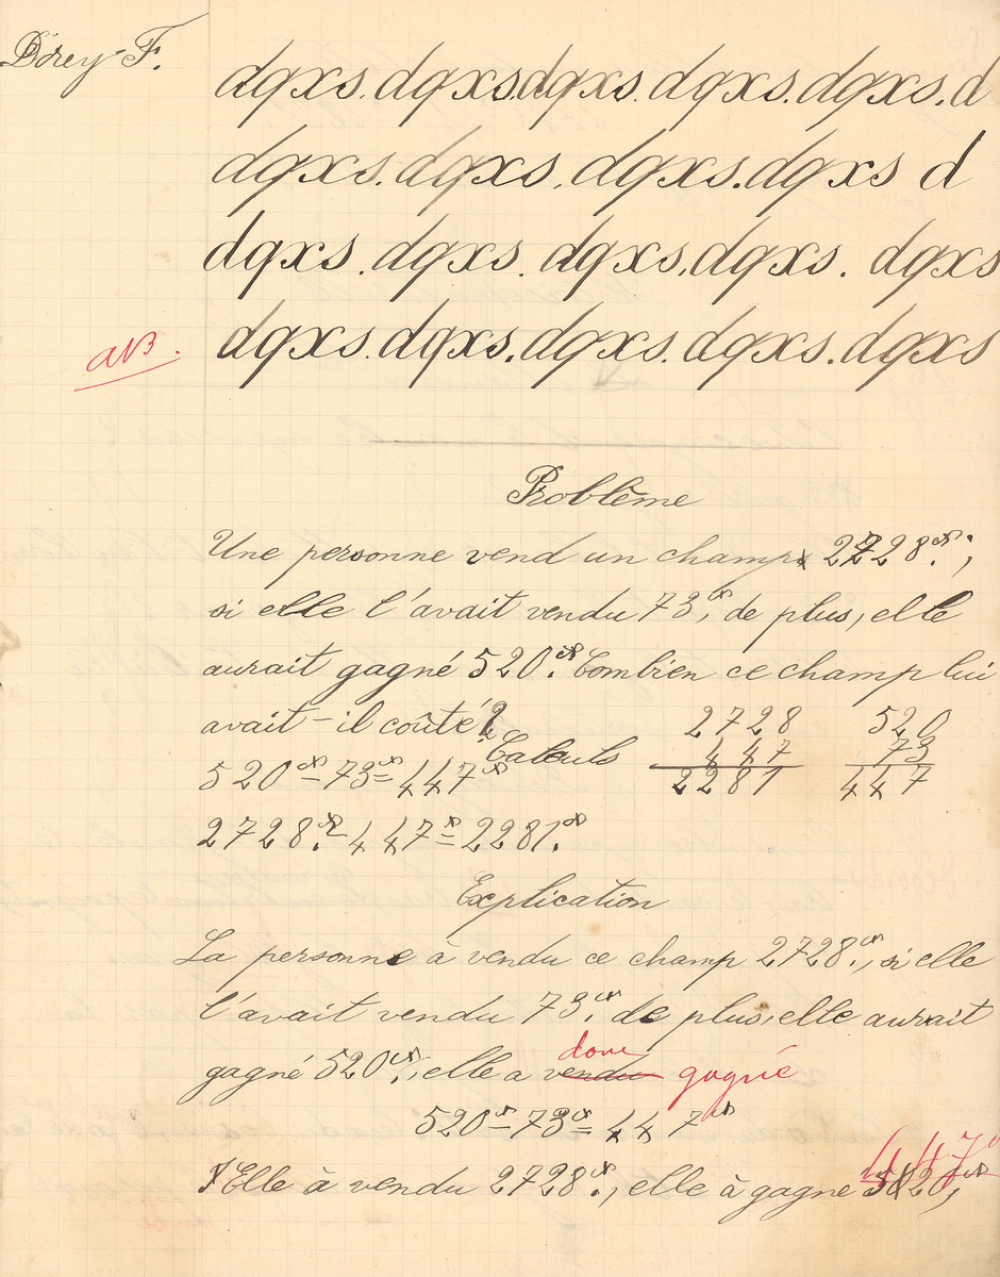 Direy F.
dqxs. dqxs. dqxs. dqxs. dqxs. d
dqxs. dqxs. dqxs. dqxs d
dqxs. dqxs. dqxs. dqxs. dqxs
dqxs. dqxs. dqxs. dqxs. dqxs
Problême
Une personne vend un champ 2728 fr.;
si elle l'avait vendu 73 fr. de plus, elle
aurait gagné 520 fr. Combien ce champ lui
avait-il coûté?
Calculs
2728 520
447 73
2281 447
520 fr - 73 fr = 447 fr
2728 fr. - 447 fr = 2281 fr.
Explication
La personne à vendu ce champ 2728 fr., si elle
l'avait vendu 73 fr. de plus, elle aurait
donc
gagné 520 fr., elle a vendu gagné
520 fr - 73 fr = 447 fr
447
Elle à vendu 2728 fr., elle à gagne 520 fr,